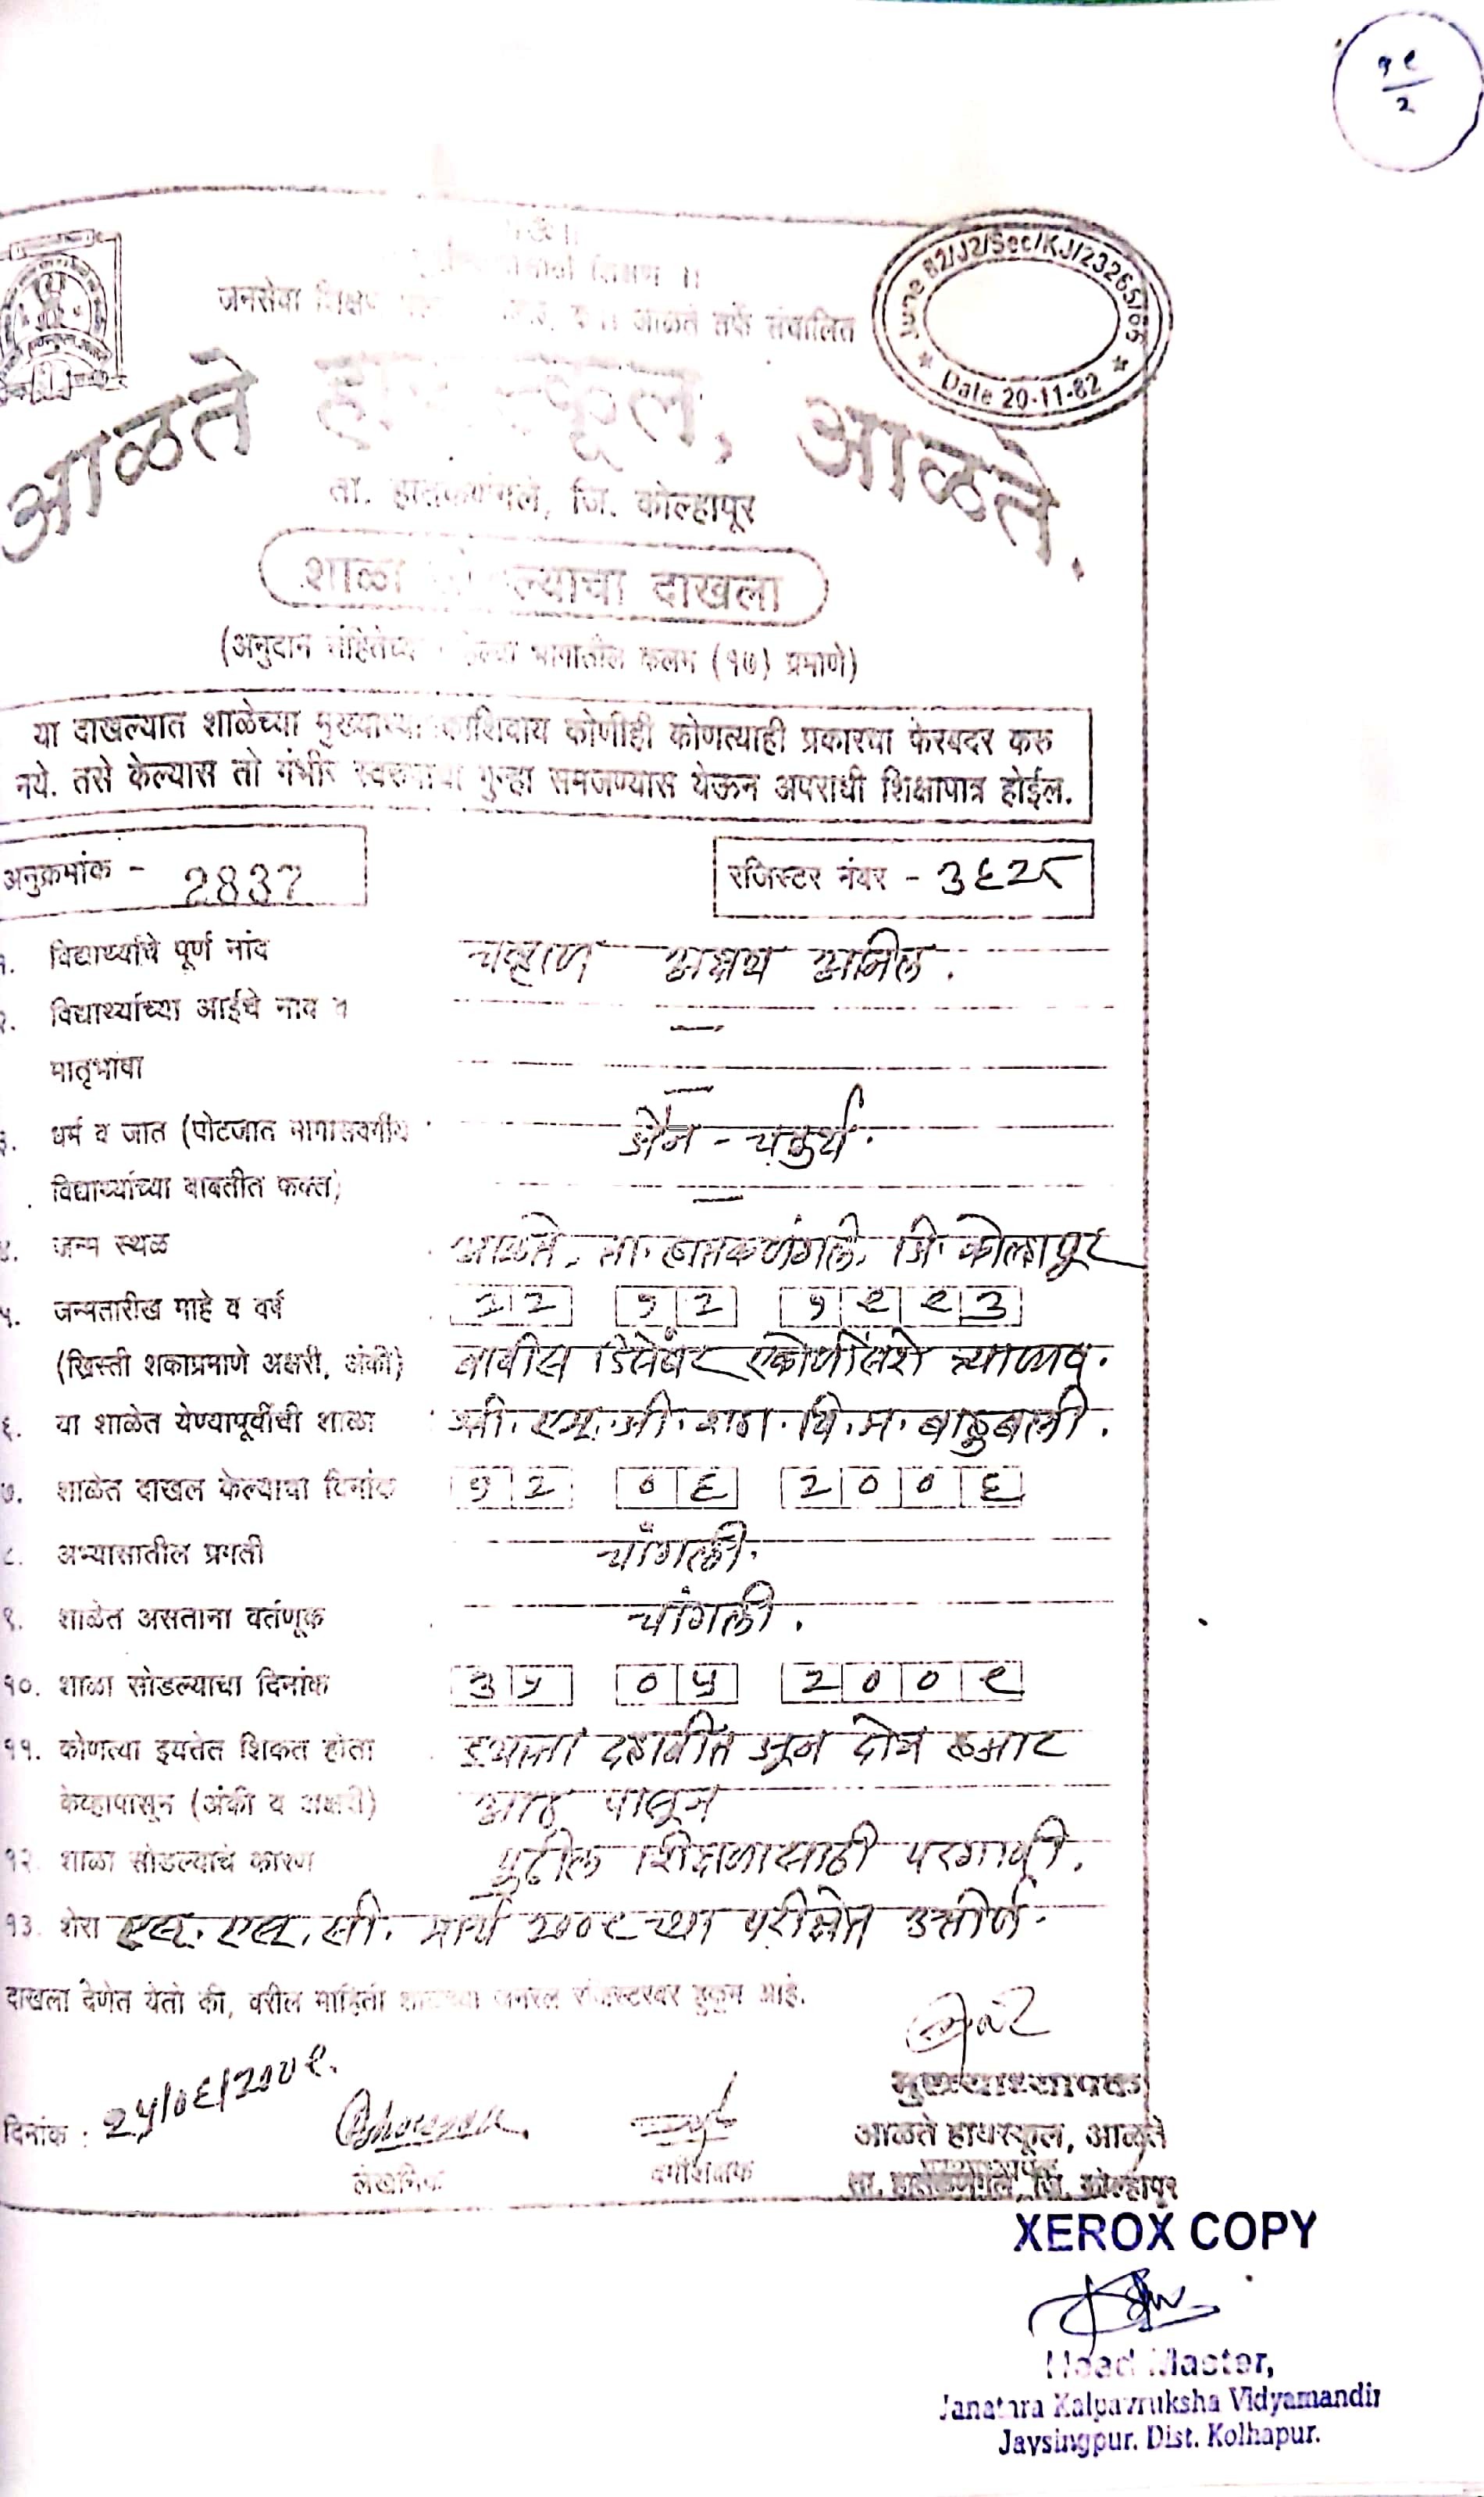 १९
२
जनसेवा शिक्षण आळते तर्फे संचालित
June 82/J2/Sec/KJ/23265/65
★ Date 20-11-82 ★
आळते हायस्कूल, आळते.
ता. हातकणंगले, जि. कोल्हापूर
शाळा सोडल्याचा दाखला
(अनुदान संहितेच्या पहिल्या भागातील कलम (१७) प्रमाणे)
या दाखल्यात शाळेच्या मुख्याध्यापकाशिवाय कोणीही कोणत्याही प्रकारचा फेरबदर करु
नये. तसे केल्यास तो गंभीर स्वरुपाचा गुन्हा समजण्यास येऊन अपराधी शिक्षापात्र होईल.
अनुक्रमांक - 2837 रजिस्टर नंबर - ३६२८
१. विद्यार्थ्याचे पूर्ण नांव चव्हाण अक्षय अनिल.
२. विद्यार्थ्याच्या आईचे नाव व —
मातृभाषा —
३. धर्म व जात (पोटजात मागासवर्गीय जैन - चतुर्थ.
विद्यार्थ्याच्या बाबतीत फक्त) —
४. जन्म स्थळ आळते. ता. हातकणंगले. जि. कोल्हापूर
५. जन्मतारीख माहे व वर्ष २२ १२ १९९३
(ख्रिस्ती शकाप्रमाणे अक्षरी, अंकी) बावीस डिसेंबर एकोणीसशे त्र्याण्णव.
६. या शाळेत येण्यापूर्वीची शाळा : एम. जी. शहा. वि. म. बाहुबली.
७. शाळेत दाखल केल्याचा दिनांक १२ ०६ २००६
८. अभ्यासातील प्रगती चांगली.
९. शाळेत असताना वर्तणूक चांगली.
१०. शाळा सोडल्याचा दिनांक ३१ ०५ २००९
११. कोणत्या इयत्तेत शिकत होता इयत्ता दहावीत जून दोन हजार
केव्हापासून (अंकी व अक्षरी) आठ पासून
१२. शाळा सोडल्याचे कारण पुढील शिक्षणासाठी परगावी.
१३. शेरा एस. एस. सी. मार्च २००९ च्या परीक्षेत उत्तीर्ण.
दाखला देणेत येतो की, वरील माहिती शाळेच्या जनरल रजिस्टरबर हुकुम आहे.
दिनांक : २५/०६/२००९.
लेखनिक वर्गशिक्षक
मुख्याध्यापक
आळते हायस्कूल, आळते
ता. हातकणंगले, जि. कोल्हापूर
XEROX COPY
Head Master,
Janatara Kalpavruksha Vidyamandir
Jaysingpur. Dist. Kolhapur.